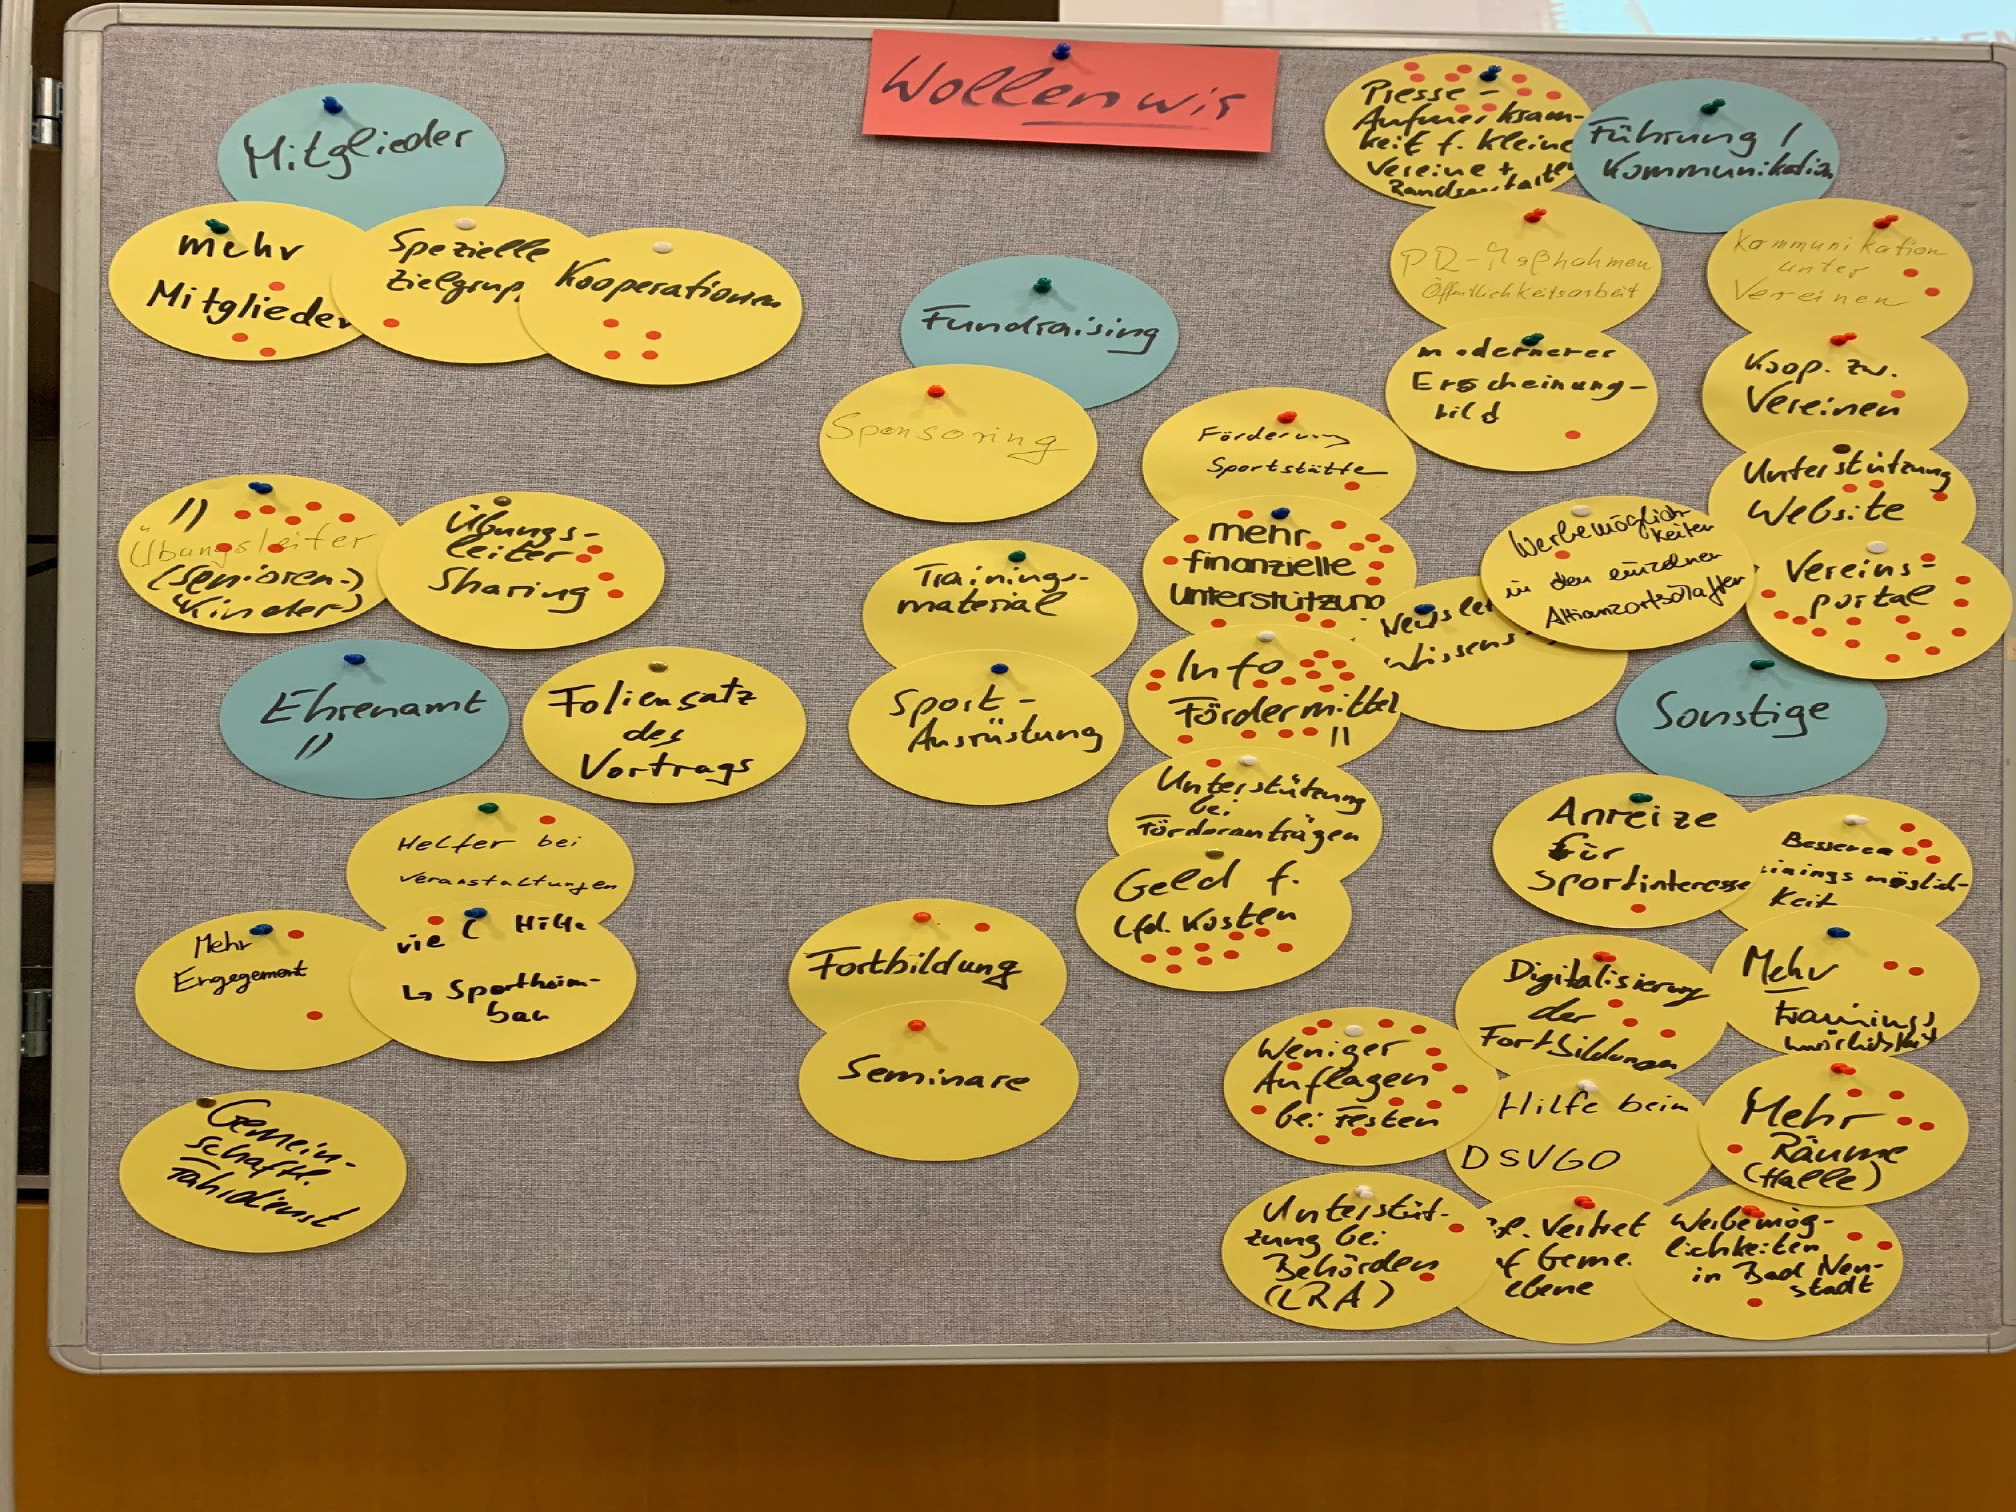 Wollen wir
Mitglieder
mehr
Mitglieder
Spezielle
Zielgrup
Kooperationen
"
Übungsleiter
(Senioren-)
Kinder)
Übungs-
leiter
Sharing
Ehrenamt
"
Foliensatz
des
Vortrags
Helfer bei
Veranstaltungen
Mehr
Engegement
Hilfe
↳ Sportheim-
bau
Gemein-
schaftl.
Fahrdienst
Fundraising
Sponsoring
Trainings-
material
Sport-
Ausrüstung
Fortbildung
Seminare
Förderung
Sportstätte
mehr
finanzielle
Unterstützung
Info
Fördermittel
"
Unterstützung
bei
Förderanträgen
Geld f.
lfd. Kosten
Presse-
Aufmerksam-
keit f. kleine
Vereine +
Führung /
Kommunikation
PR-Maßnahmen
Öffentlichkeitsarbeit
modernerer
Erscheinung-
bild
Kommunikation
unter
Vereinen
Koop. zw.
Vereinen
Unterstützung
Website
Vereins-
portal
Werbemöglich-
keiten
in den einzelnen
Allianzortschaften
Newslet
Wissens
Sonstige
Anreize
für
Sportinteresse
Bessere
inings möglich-
keit
Digitalisierung
der
Fortbildungen
Mehr
Trainings
Weniger
Auflagen
bei Festen
Hilfe beim
DSVGO
Mehr
Räume
(Halle)
Unterstüt-
zung bei
Behörden
(LRA)
Vertret
f Geme.
ebene
Werbemög-
lichkeiten
in Bad Neu-
stadt